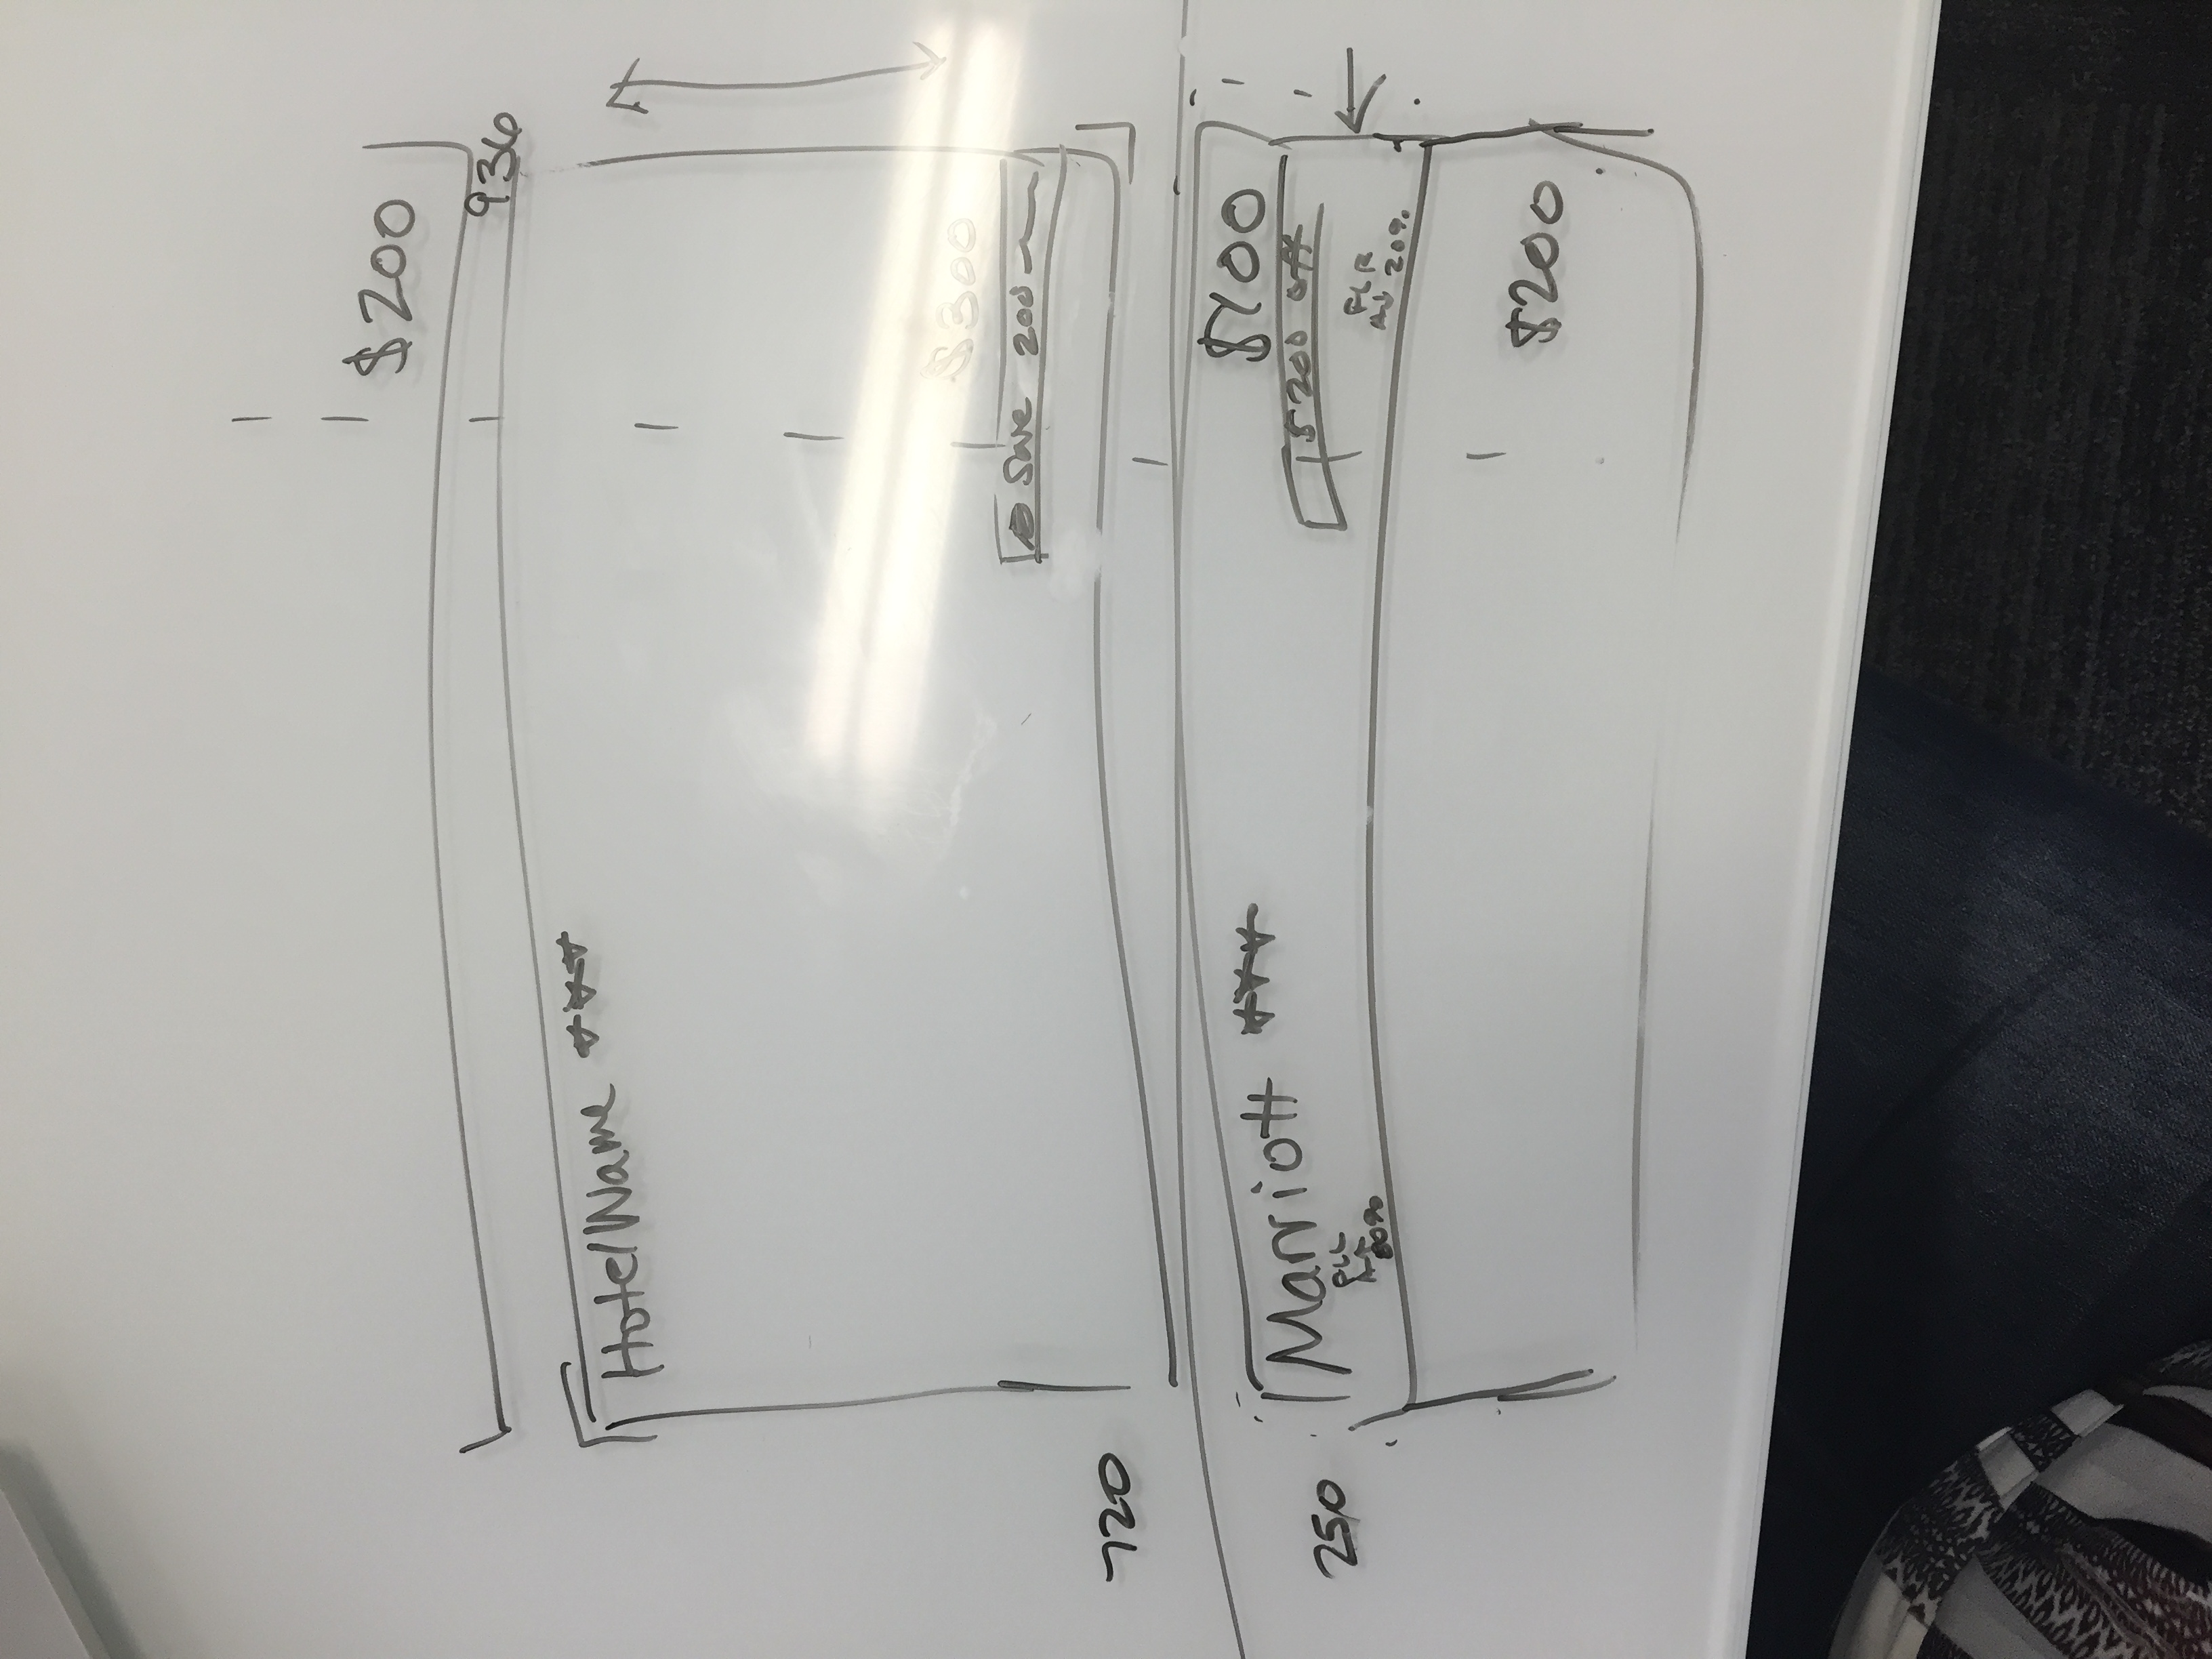 $200
936
HotelName ★★★
$300
Save 200
720
Marriott ★★★
$100
$200 off
250
FLR
20%
$200